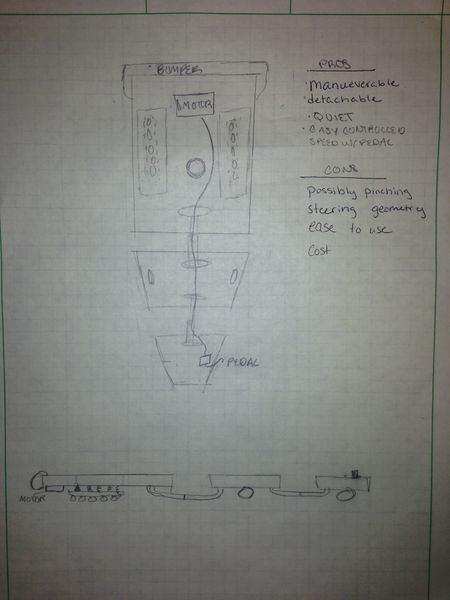 BUMPER
MOTOR
PEDAL
MOTOR
PROS
· Manueverable
· detachable
· QUIET
· EASY CONTROLLED
SPEED W/ PEDAL
CONS
Possibly pinching
Steering geometry
ease to use
Cost